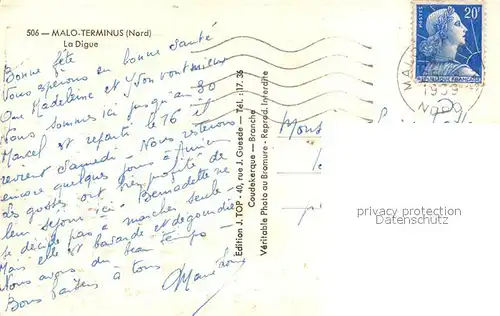 506 — MALO-TERMINUS (Nord)
La Digue
Bonne fête
Vous espérons en bonne santé
Que Madeleine et Yvon vont mieux
Nous sommes ici jusqu'au 30
Marcel est reparti le 16 il
revient samedi - Nous resterons
encore quelques jours à
les gosses ont
leur séjour ici. Bernadette ne
se décide pas à marcher seule -
Mais elle est bavarde et dégourdie
Nous avons du beau temps -
Bons baisers à tous
Marie
Edition J. TOP - 40, rue J. Guesde — Tél. : 17.36
Coudekerque — Branche
Véritable Photo au Bromure - Reprod. Interdite
POSTES
20F
REPUBLIQUE FRANÇAISE
MALO
1959
NORD
privacy protection
DELCAMPE